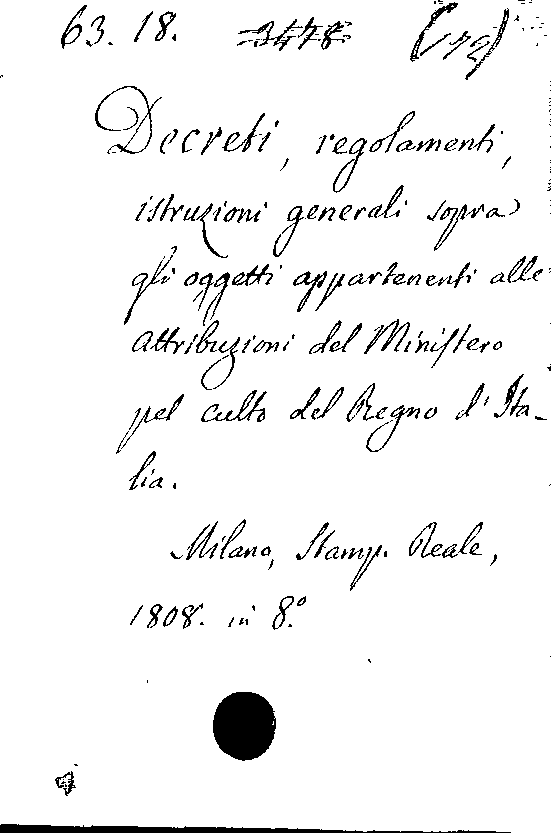 63. 18. 3478 (72)
Decreti, regolamenti,
istruzioni generali sopra
gli oggetti appartenenti alle
attribuzioni del Ministero
pel culto del Regno d'Ita-
lia.
Milano, Stamp. Reale,
1808. in 8.º